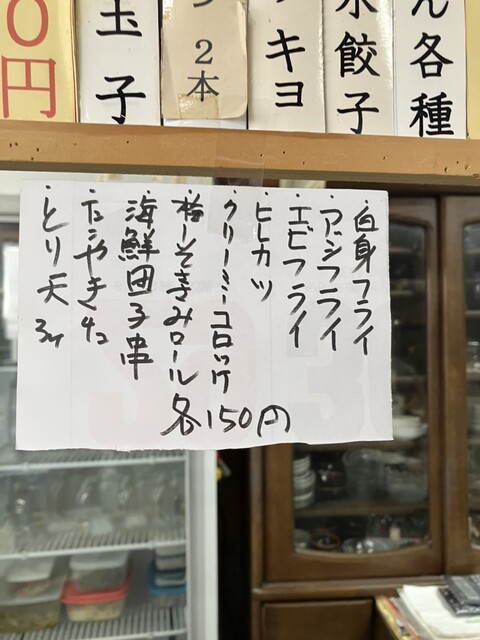 ん各種
水餃子
キヨ
2本
玉子
0円
・白身フライ
・アジフライ
・エビフライ
・ヒレカツ
・クリーミーコロッケ
・梅しそきみロール
・海鮮団子串
・たこやき4コ
・とり天3ヶ
各150円